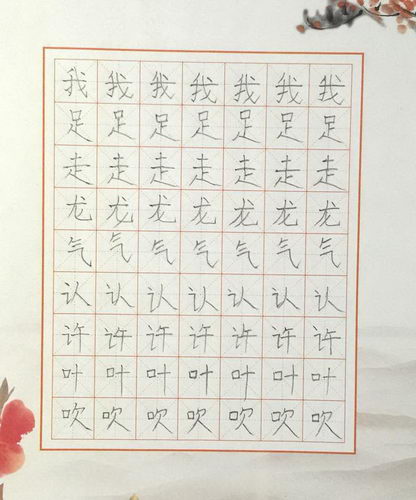 我我我我我我我
足足足足足足足
走走走走走走走
龙龙龙龙龙龙龙
气气气气气气气
认认认认认认认
许许许许许许许
叶叶叶叶叶叶叶
吹吹吹吹吹吹吹